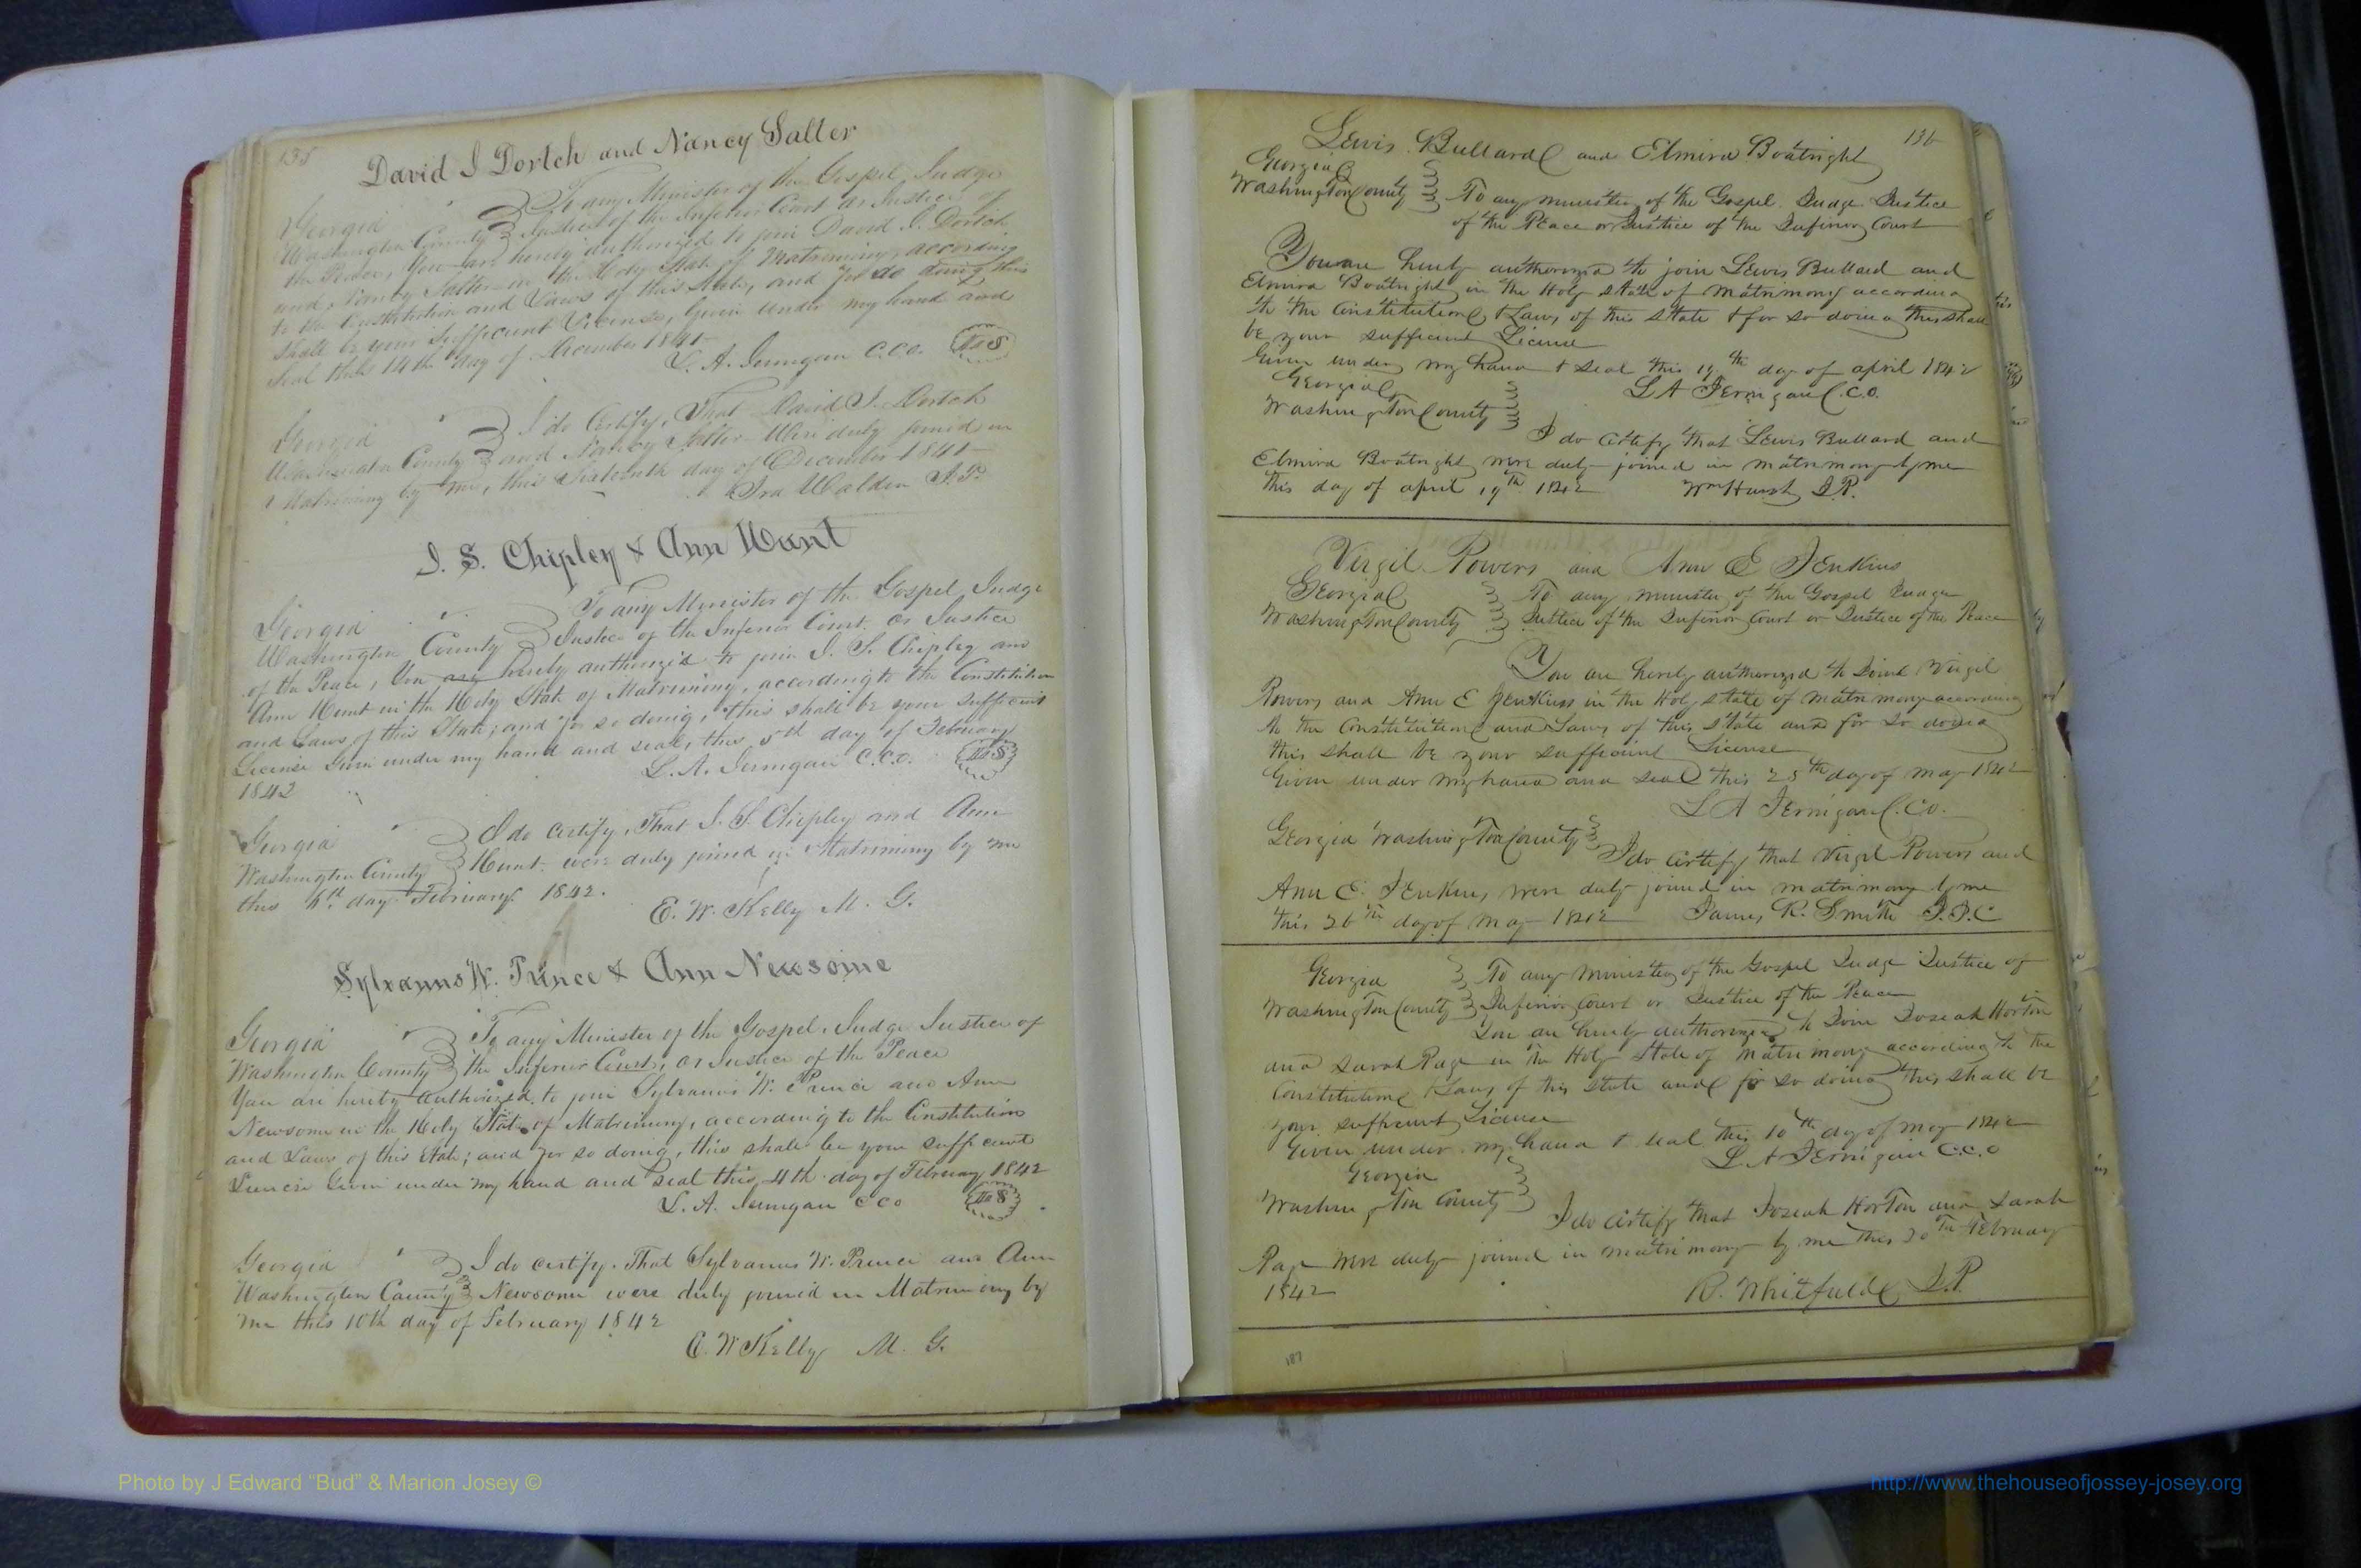 135
David I Dortch and Nancy Salter
Georgia To any Minister of the Gospel, Judge
Washington County Justice of the Inferior Court or Justice of
the Peace, You are hereby authorized to join David I. Dortch
and Nancy Salter in the Holy State of Matrimony, according
to the Constitution and Laws of this State, and for so doing this
shall be your sufficient License, Given under my hand and
Seal this 14th day of December 1841
L. A. Jernigan C.C.O.
Georgia I do Certify, That David I. Dortch
Washington County and Nancy Salter Were duly joined in
Matrimony by me, this Sixteenth day of December 1841
Ira Walden J.P.
I. S. Chipley & Ann Hunt
Georgia To any Minister of the Gospel, Judge
Washington County Justice of the Inferior Court or Justice
of the Peace, You are hereby authorized to join I. S. Chipley and
Ann Hunt in the Holy State of Matrimony, according to the Constitution
and Laws of this State; and for so doing, this shall be your sufficient
License Given under my hand and seal, this 5th day of February
1842 L. A. Jernigan C.C.O.
Georgia I do certify, That I. S. Chipley and Ann
Washington County Hunt were duly joined in Matrimony by me
this 6th day February 1842.
E. W. Kelly M. G.
Sylvanus W. Prince & Ann Newsome
Georgia To any Minister of the Gospel, Judge Justice of
Washington County the Inferior Court, or Justice of the Peace
You are hereby authorized to join Sylvanus W. Prince and Ann
Newsome in the Holy State of Matrimony, according to the Constitution
and Laws of this State; and for so doing, this shall be your sufficient
License Given under my hand and seal this 4th day of February 1842
L. A. Jernigan CCO
Georgia I do certify. That Sylvanus W. Prince and Ann
Washington County Newsome were duly joined in Matrimony by
me this 10th day of February 1842
E. W Kelly M. G.
136
Lewis Bullard and Elmira Boatright
Georgia
Washington County To any minister of the Gospel Judge Justice
of the Peace or Justice of the Inferior Court
You are hereby authorized to join Lewis Bullard and
Elmira Boatright in the Holy state of Matrimony according
to the Constitution & Laws of this state & for so doing this shall
be your sufficient License
Given under my hand & seal this 19th day of april 1842
Georgia L A Jernigan C.C.O.
Washington County
I do certify that Lewis Bullard and
Elmira Boatright were duly joined in matrimony by me
this day of april 19th 1842 Wm Hurst J.P.
Virgil Powers and Ann E Jenkins
Georgia To any minister of the Gospel Judge
Washington County Justice of the Inferior Court or Justice of the Peace
You are hereby authorized to Join Virgil
Powers and Ann E Jenkins in the Holy state of matrimony according
to the Constitution and Laws of this state and for so doing
this shall be your sufficient License
Given under my hand and seal this 25th day of may 1842
L A Jernigan C.C.O.
Georgia Washington County I do certify that Virgil Powers and
Ann E. Jenkins were duly joined in matrimony by me
this 26th day of may 1842 James R. Smith J.I.C
Georgia To any Minister of the Gospel Judge Justice of
Washington County Inferior Court or Justice of the Peace
You are hereby authorized to Join Joseah Horton
and Sarah Page in the Holy State of matrimony according to the
Constitution & Laws of this state and for so doing this shall be
your sufficient License
Given under my hand & seal this 10th day of may 1842
Georgia L A Jernigan C.C.O
Washington County
I do certify that Joseah Horton and Sarah
Page were duly joined in matrimony by me this 20th February
1842
R. Whitfield J.P.
187
Photo by J Edward "Bud" & Marion Josey ©
http://www.thehouseofjossey-josey.org